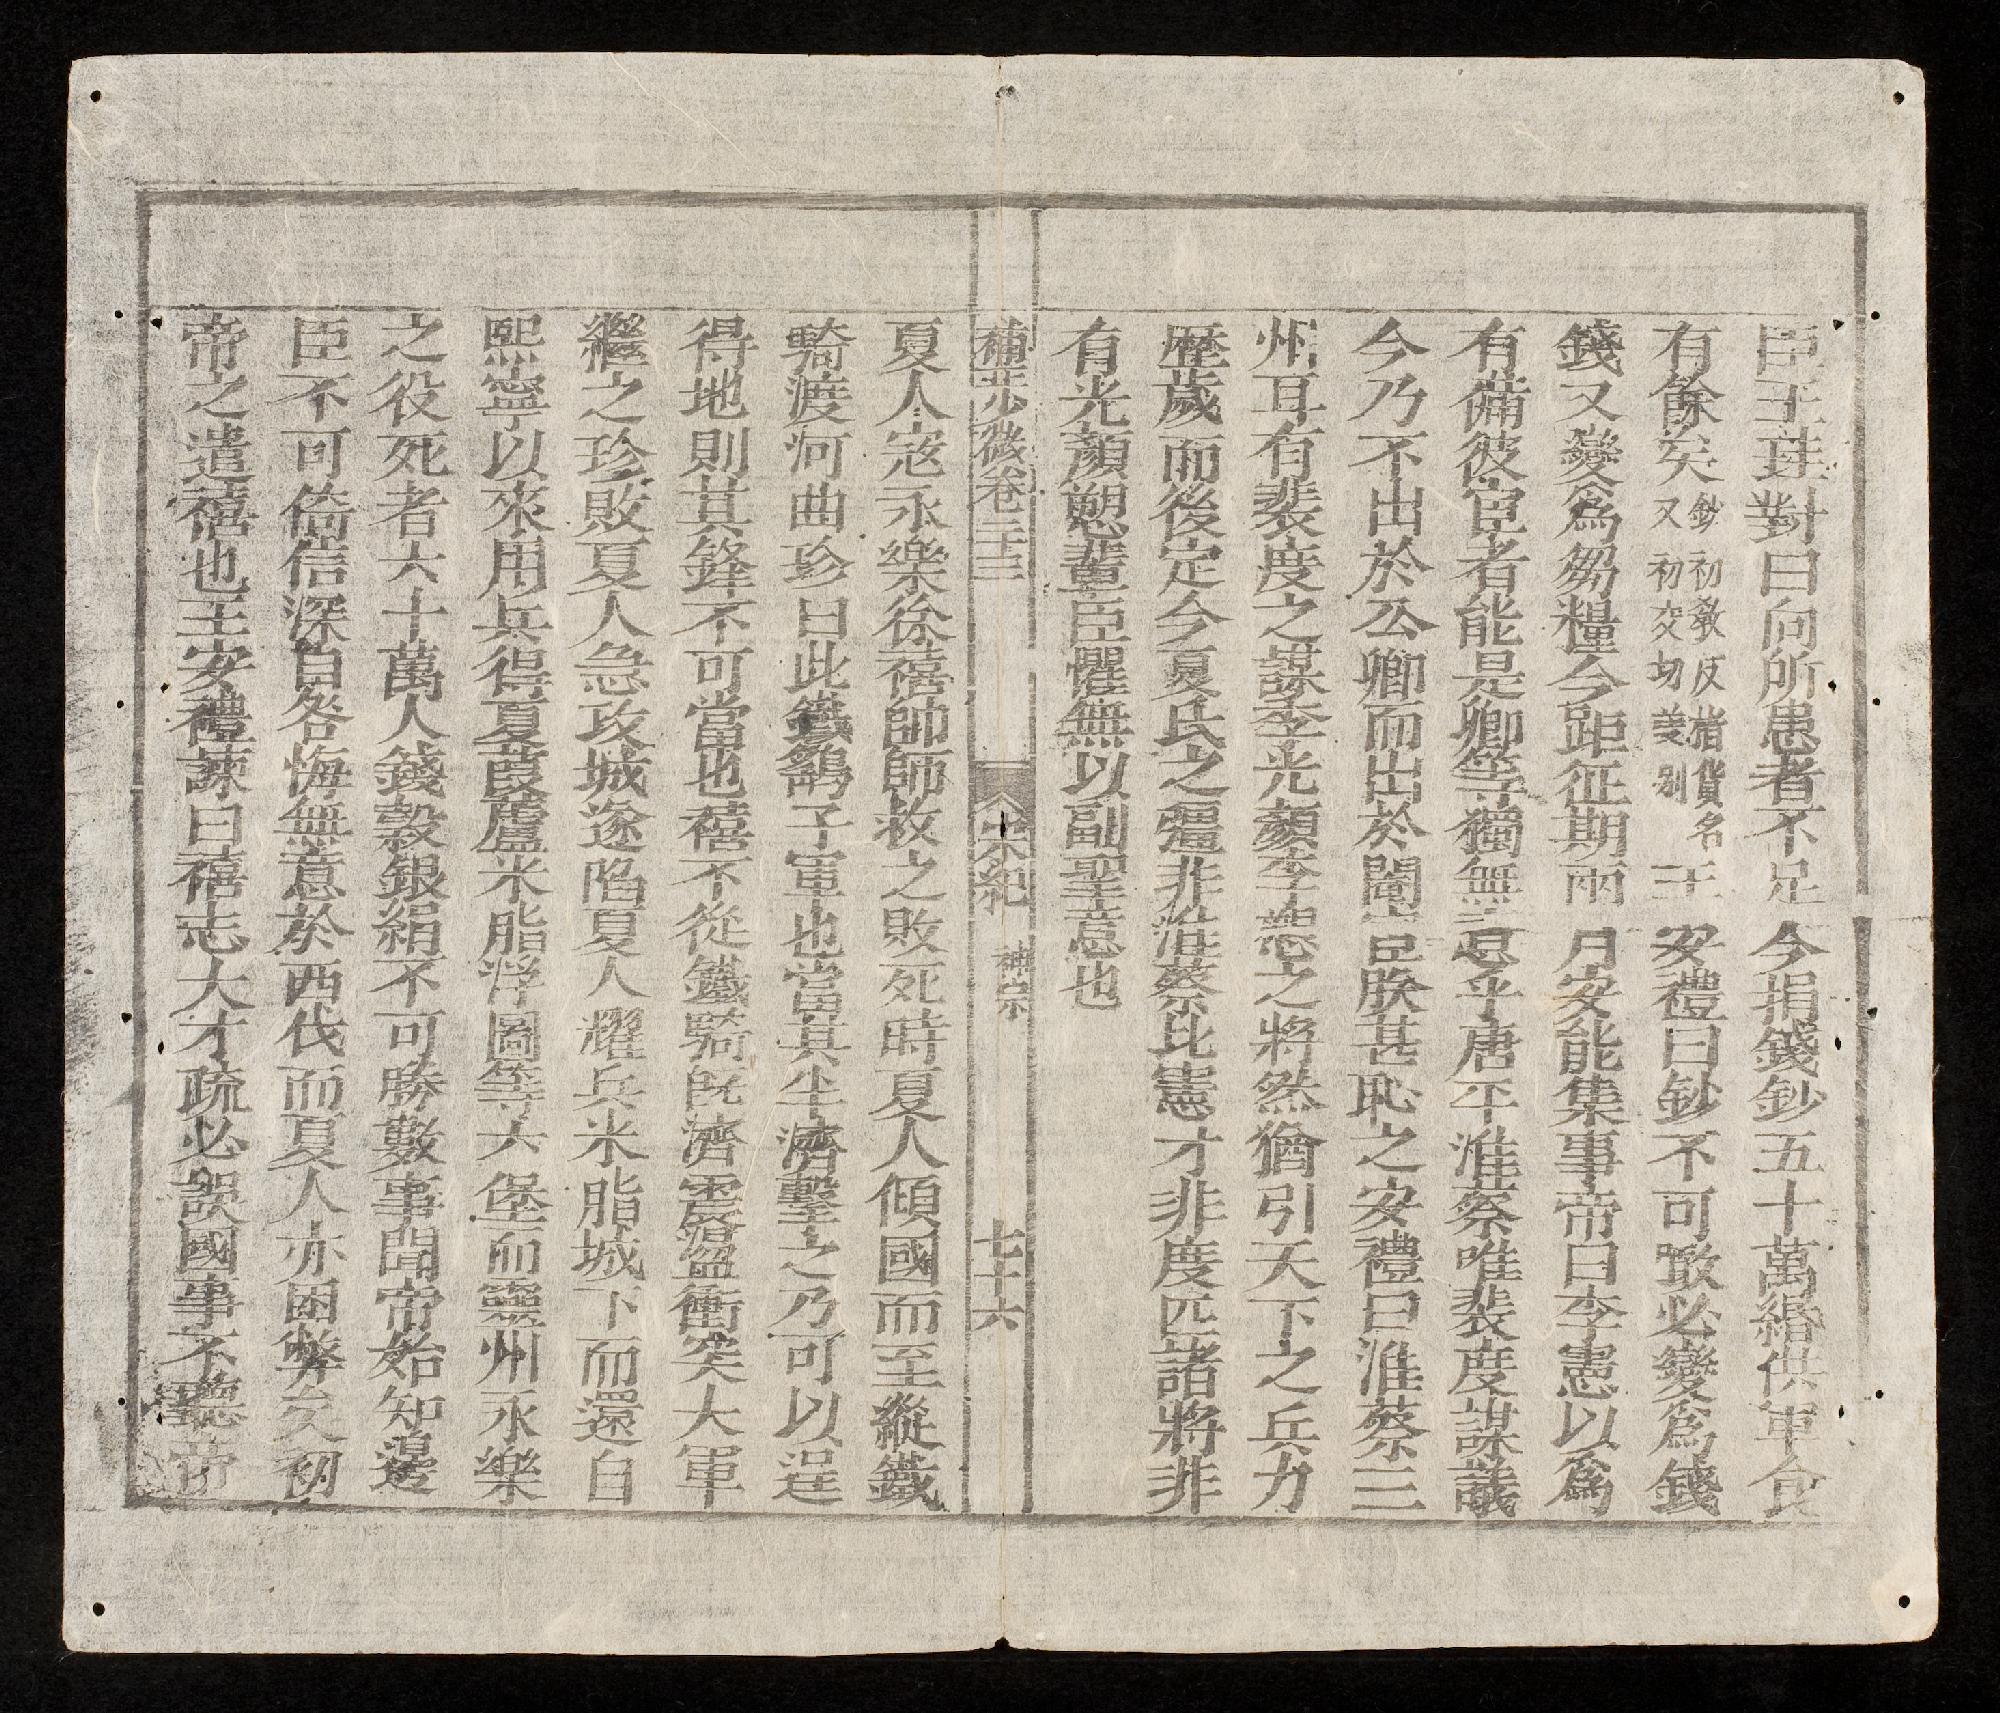 臣王珪對曰向所患者不足今捐錢鈔五十萬緡供軍食
有餘矣鈔初敎反楮貨名
又初交切義别王安禮曰鈔不可㪚必變爲錢
錢又變爲芻糧今距征期兩月安能集事帝曰李憲以爲
有備彼宦者能是卿等獨無意乎唐平淮蔡唯裴度謀議
今乃不出於公卿而出於閹宦臣朕甚恥之安禮曰淮蔡三
州耳有裴度之謀李光顏李愬之將然猶引天下之兵力
歷歲而後定今夏氏之疆非淮蔡比憲才非度匹諸將非
有光顏愬輩臣懼無以副聖意也
補少微卷二十三 宋紀 神宗 七十六
夏人寇永樂徐禧帥師救之敗死時夏人傾國而至縱鐵
騎渡河曲珍曰此鐵鷂子軍也當其半濟擊之乃可以逞
得地則其鋒不可當也禧不從鐵騎旣濟震盪衝突大軍
繼之珍敗夏人急攻城遂陷夏人耀兵米脂城下而還自
熙寧以來用兵得夏葭蘆米脂浮圖等六堡而靈州永樂
之役死者六十萬人錢穀銀絹不可勝數事聞帝始知邊
臣不可倚信深自咎悔無意於西伐而夏人亦困弊矣初
帝之遣禧也王安禮諫曰禧志大才疏必誤國事不聽帝